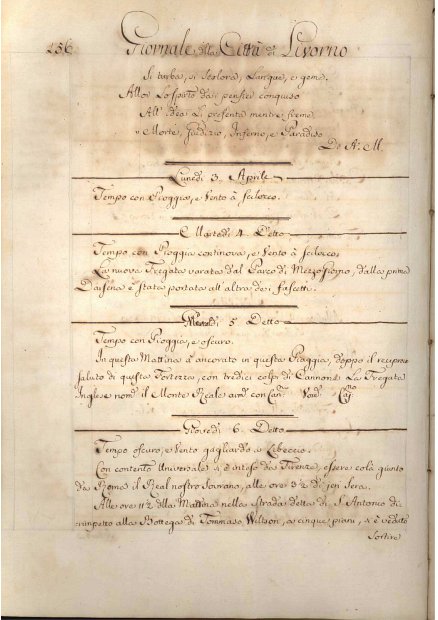 256 Giornale della Città di Livorno
Si turba, si scolora, Langue, e geme.
Allor Lo Spirto dai pensier conquiso
All' idea Li presenta mentre freme
Morte, Judizio, Inferno, e Paradiso
De A. M.
Lunedi 3. Aprile
Tempo con Pioggia, e Vento à Scilocco.
Martedi 4. Detto
Tempo con Pioggia continova, e Vento à Scilocco,
La nuova Fregata varata dal Parco di Mezzo Giorno, dalla prima
Darsena è stata portata all' altra dei Fascetti.
Mercoldi 5 Detto
Tempo con Pioggia, e oscuro.
In questa Mattina à ancorato in questa Piaggia, doppo il reciproco
saluto di questa Fortezza, con tredici colpi di Cannone La Fregata
Inglese nom. il Monte Reale
Giovedi 6. Detto
Tempo oscuro, e Vento gagliardo à Libeccio.
Con contento Universale s'è inteso da Firenze, essere colà giunto
da Roma il Real nostro Sovrano, alle ore 3½ di jeri Sera.
Alle ore 11½ della Mattina nella strada detta di S. Antonio di-
rimpetto alla Bottega di Tommaso Weltson, a cinque piani, s'è veduto
Sortire